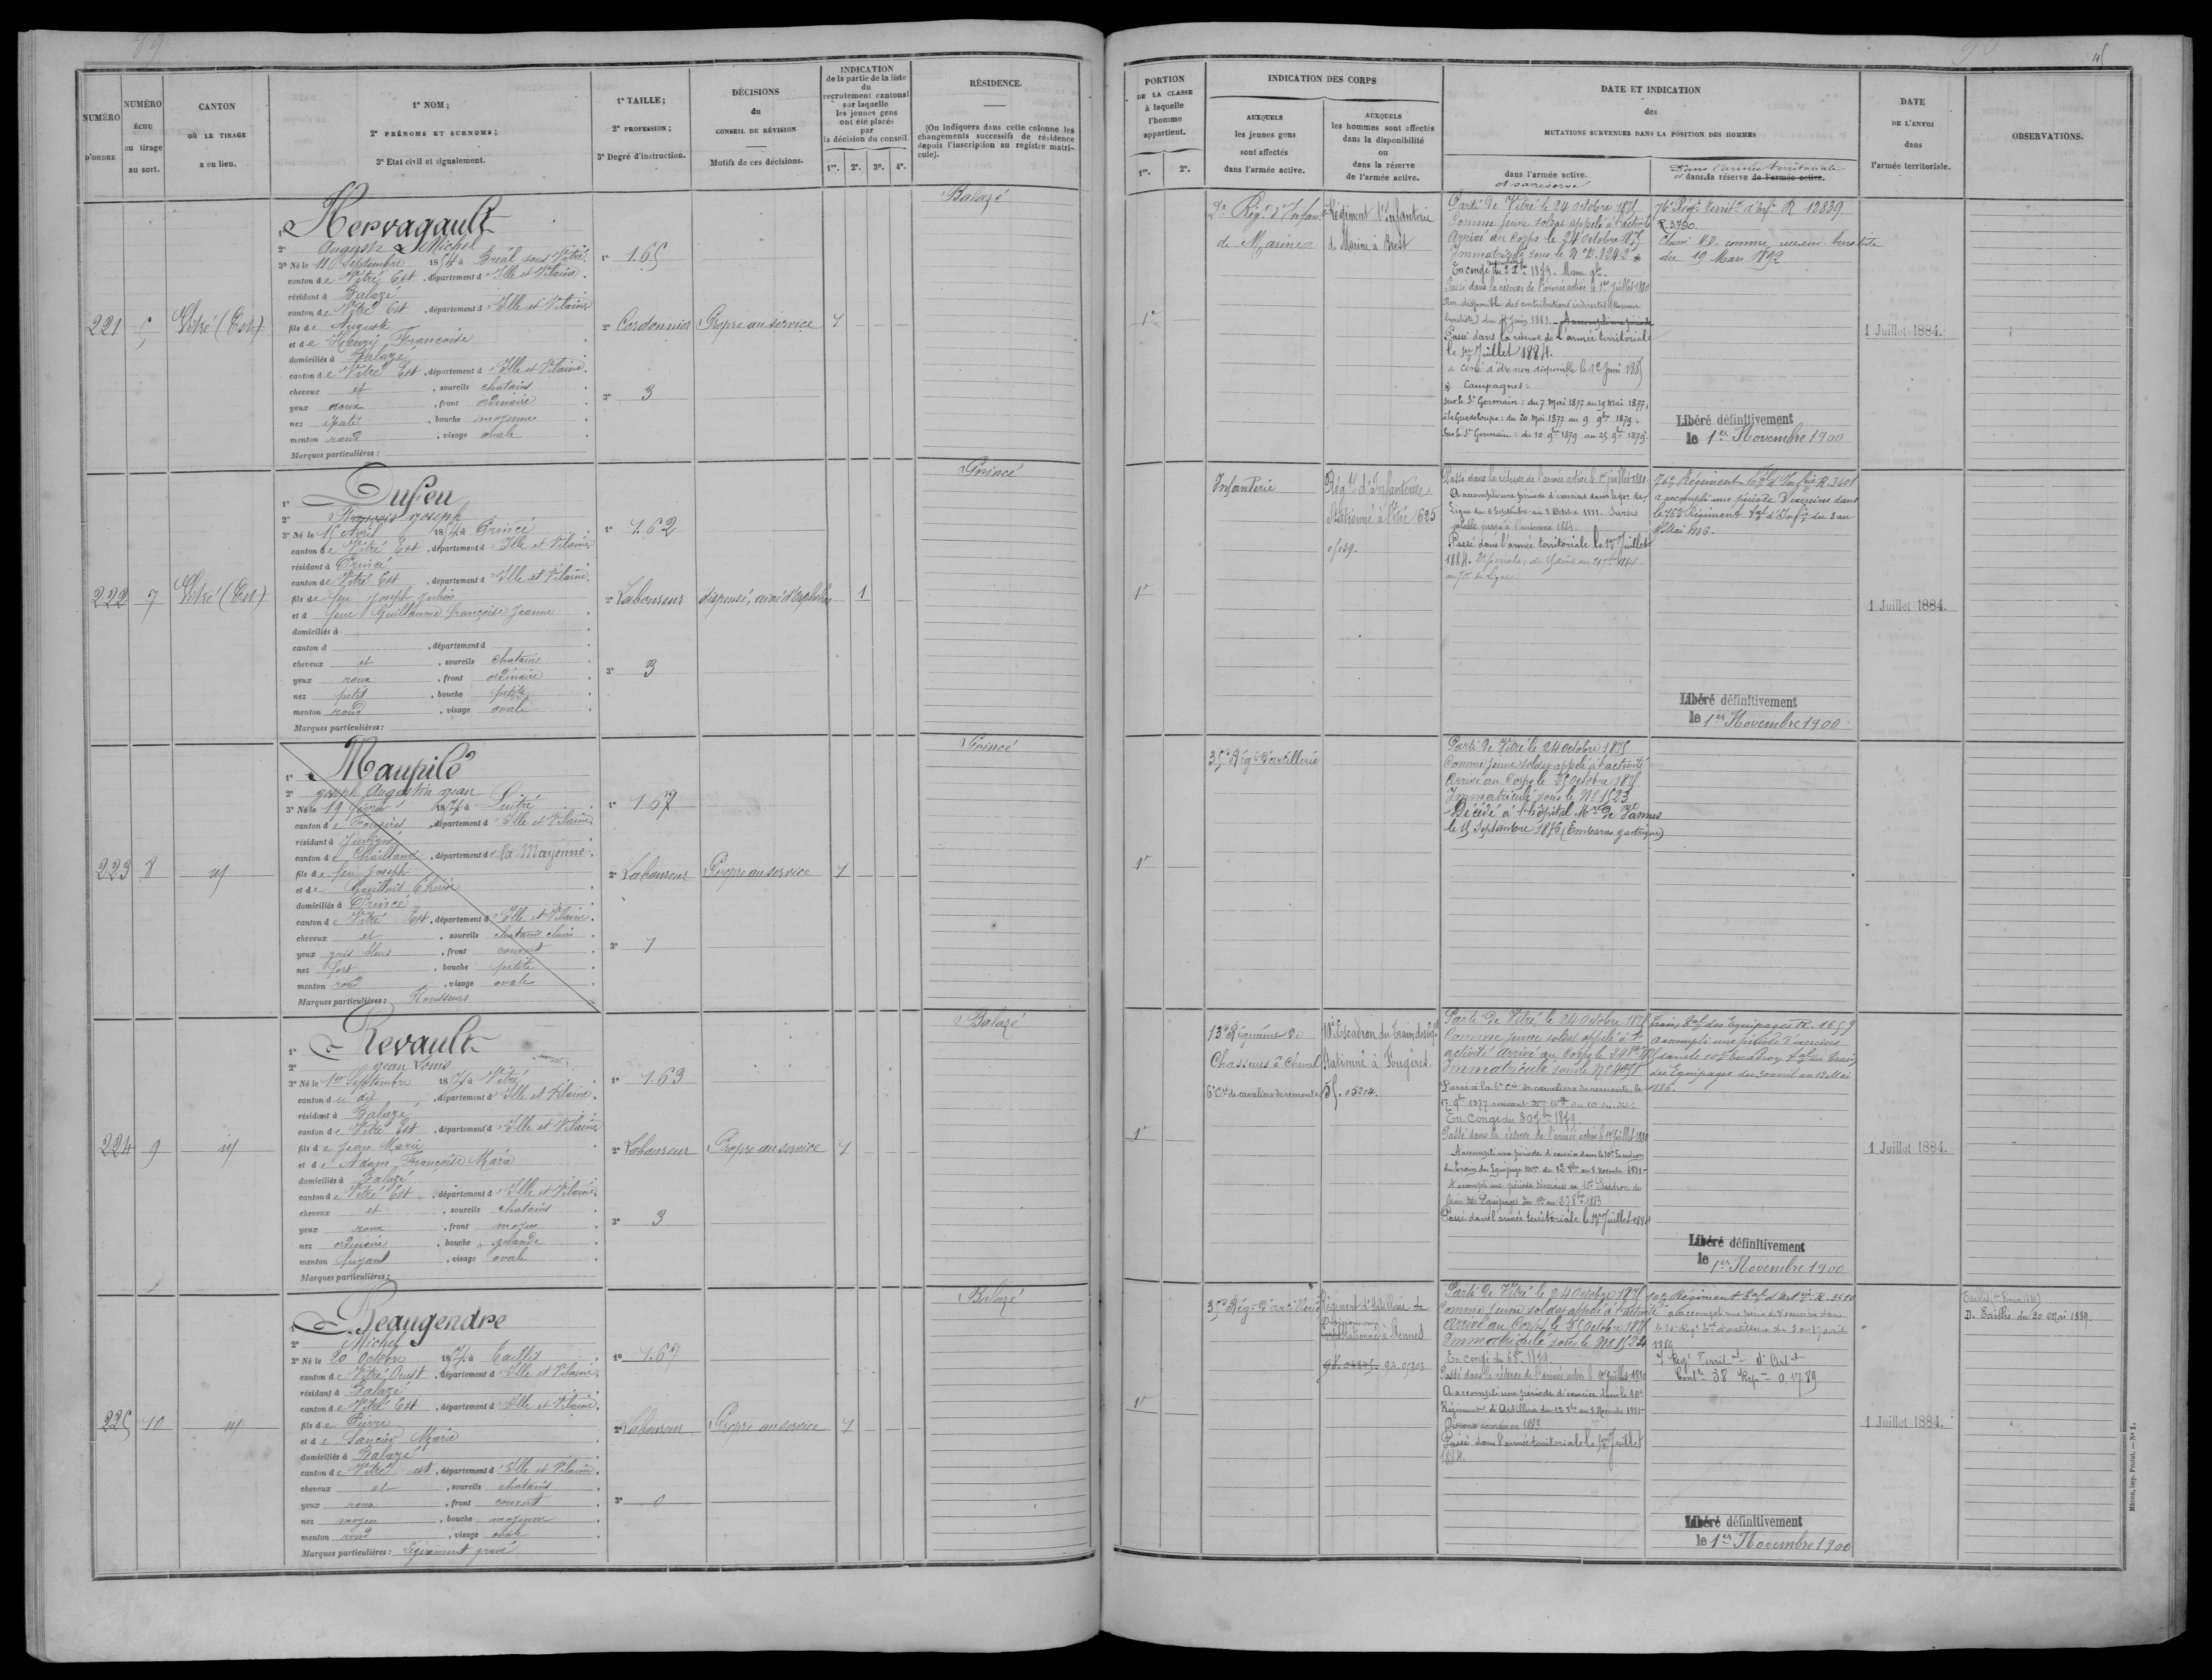 89
NUMÉRO D'ORDRE
NUMÉRO ÉCHU au tirage au sort.
CANTON OÙ LE TIRAGE a eu lieu.
1° NOM;
2° PRÉNOMS ET SURNOMS;
3° Etat civil et signalement.
1° TAILLE;
2° PROFESSION;
3° Degré d'instruction.
DÉCISIONS du CONSEIL DE RÉVISION
Motifs de ces décisions.
INDICATION
de la partie de la liste
du
recrutement cantonal
sur laquelle
les jeunes gens
ont été placés
par
la décision du conseil.
1re. 2e. 3e. 4e.
RÉSIDENCE.
(On indiquera dans cette colonne les
changements successifs de résidence
depuis l'inscription au registre matri-
cule).
221
5
Vitré (Est)
1° Hervagault
2° Auguste Michel
3° Né le 110 Septembre 1854 à Bréal sous Vitré
canton de Vitré Est, département d'Ille et Vilaine
résidant à Balazé
canton de Vitré Est, département d'Ille et Vilaine
fils de Auguste
et de Henry Françoise
domiciliés à Balazé
canton de Vitré Est, département d'Ille et Vilaine
cheveux et, sourcils chatains
yeux roux, front ordinaire
nez épaté, bouche moyenne
menton rond, visage ovale
Marques particulières:
1° 1.65
2° Cordonnier
3° 3
Propre au service
1
Balazé
222
7
Vitré (Est)
1° Dufeu
2° François Joseph
3° Né le 15 Avril 1854 à Princé
canton de Vitré Est, département d'Ille et Vilaine
résidant à Princé
canton de Vitré Est, département d'Ille et Vilaine
fils de feu Joseph Julien
et d feue Guillaume Françoise Jeanne
domiciliés à
canton d, département d
cheveux et, sourcils chatains
yeux roux, front ordinaire
nez petit, bouche petite
menton rond, visage ovale
Marques particulières:
1° 1.62
2° Laboureur
3° 3
dispensé, ainé d'orphelins
1
Princé
223
8
id
1° Maupilé
2° Joseph Augustin Jean
3° Né le 19 Février 1854 à Luitré
canton de Fougères, département d'Ille et Vilaine
résidant à Juvigné
canton de Chailland, département de la Mayenne
fils de feu Joseph
et de
domiciliés à Princé
canton de Vitré Est, département d'Ille et Vilaine
cheveux et, sourcils chatains clairs
yeux gris bleus, front couvert
nez fort, bouche petite
menton rond, visage ovale
Marques particulières: Rousseurs
1° 1.67
2° Laboureur
3° 1
Propre au service
1
Princé
224
9
id
1° Revault
2° Jean Louis
3° Né le 1er Septembre 1854 à Vitré
canton d u dit, département d'Ille et Vilaine
résidant à Balazé
canton de Vitré Est, département d'Ille et Vilaine
fils de Jean Marie
et de Adam Françoise Marie
domiciliés à Balazé
canton de Vitré Est, département d'Ille et Vilaine
cheveux et, sourcils chatains
yeux roux, front moyen
nez ordinaire, bouche grande
menton fuyant, visage ovale
Marques particulières:
1° 1.63
2° Laboureur
3° 3
Propre au service
1
Balazé
225
10
id
1° Beaugendre
2° Michel
3° Né le 20 Octobre 1854 à Taillis
canton de Vitré Ouest, département d'Ille et Vilaine
résidant à Balazé
canton de Vitré Est, département d'Ille et Vilaine
fils de Pierre
et de Saucier Marie
domiciliés à Balazé
canton de Vitré est, département d'Ille et Vilaine
cheveux et, sourcils chatains
yeux roux, front couvert
nez moyen, bouche moyenne
menton rond, visage ovale
Marques particulières: Légèrement gravé
1° 1.67
2° Laboureur
3° 0
Propre au service
1
Balazé
PORTION DE LA CLASSE à laquelle l'homme appartient.
1re. 2e.
INDICATION DES CORPS
AUXQUELS les jeunes gens sont affectés dans l'armée active.
AUXQUELS les hommes sont affectés dans la disponibilité ou dans la réserve de l'armée active.
DATE ET INDICATION
des
MUTATIONS SURVENUES DANS LA POSITION DES HOMMES
dans l'armée active.
et sa réserve
Dans l'armée territoriale
et dans la réserve de l'armée active.
DATE DE L'ENVOI dans l'armée territoriale.
OBSERVATIONS.
1re
2e Régt d'Infanie
de Marine
Régiment d'Infanterie
de Marine à Brest
Parti de Vitré le 24 octobre 1875
Comme jeune soldat appelé à l'activité
Arrivé au Corps le 24 Octobre 1875
Immatriculé sous le N° B.1242 *
En congé du 2 Xbre 1879.
Passé dans la réserve de l'armée active le 1er Juillet 1880
Non disponible des contributions indirectes (Receveur
buraliste) du 8 Juin 1881. A accompli une période
Passé dans la réserve de l'armée territoriale
le 1er Juillet 1884.
a cessé d'être non disponible le 12 Juin 1885
* Campagnes:
Sur le St Germain: du 7 mai 1877 au 19 mai 1877;
à la Guadeloupe: du 20 mai 1877 au 9 9bre 1879.
Sur le St Germain: du 10 9bre 1879 au 25 9bre 1879.
76e Régt territal d'Infie R 12839
R.3790.
Classé N.D. comme receveur buraliste
du 19 Mars 1892
Libéré définitivement
le 1er Novembre 1900
1 Juillet 1884.
1re
Infanterie
Régt d'Infanterie
Stationné à Vitré 625
0/039.
Passé dans la réserve de l'armée active le 1er juillet 1880.
A accompli une période d'exercices dans le 70e de
Ligne du 6 Septembre au 3 Octobre 1881. Sursis
valable jusqu'à l'automne 1884.
Passé dans l'armée territoriale le 1er Juillet
1884.
au 70e de Ligne
76e Régiment Tal d'Infie R. 3601
a accompli une période d'exercices dans
le 76e Régiment tal d'Infie du 3 au
Mai 1886.
Libéré définitivement
le 1er Novembre 1900
1 Juillet 1884.
1re
35e Régt d'artillerie
Parti de Vitré le 24 octobre 1875
Comme jeune soldat appelé à l'activité
Arrivé au Corps le 25 Octobre 1875
Immatriculé sous le N° 1523
Décédé à l'hôpital Mre de Vannes
le 15 Septembre 1876 (Embarras gastrique)
1re
13e Régiment de
Chasseurs à Cheval
6e Cie de cavaliers de remonte
10e Escadron du train des Eqes
Stationné à Fougères
55. 05214.
Parti de Vitré le 24 Octobre 1875
Comme jeune soldat appelé à l'
activité Arrivé au Corps le 28 8bre 1875
Immatriculé sous le N° 4071
Passé à la 6e Cie de cavaliers de remonte le
17 9bre 1877 suivant du 10 du dit.
En Congé du 30 7bre 1879
Passé dans la réserve de l'armée active le 1er Juillet 1880
A accompli une période d'exercice dans le 10e Escadron
du train des Equipages mres du 12 8bre au 8 novembre 1881.
A accompli une période d'exercices au 10e Escadron du
train des Equipages du 1er au 28 8bre 1883
Passé dans l'armée territoriale le 1er Juillet 1884
Train tal des Equipages R. 1659
A accompli une période d'exercices
dans le 10e Escadron tal du train
des Equipages du 30 avril au 12 Mai
1886.
Libéré définitivement
le 1er Novembre 1900
1 Juillet 1884.
1re
35e Régt d'artillerie
Régiment d'Artillerie
Divisionnaire
Stationné à Rennes
98.04805. 94.05303
Parti de Vitré le 24 Octobre 1875
Comme jeune soldat appelé à l'activité
Arrivé au Corps le 25 Octobre 1875
Immatriculé sous le N° 1524
En congé du 1879
Passé dans la réserve de l'armée active le 1er juillet 1880
A accompli une période d'exercice dans le 10e
Régiment d'Artillerie du 12 8bre au 8 Novembre 1881.
Dispense accordée en 1883
Passé dans l'armée territoriale le 1er Juillet
1884.
10e Régiment tal d'Artie R. 3610
a accompli une période d'exercices dans
le 10e Régt tal d'artillerie du 3 au 17 avril
1886
Régt Territal d'Artie
Contle 38 Repre 0.1789
Libéré définitivement
le 1er Novembre 1900
1 Juillet 1884.
D. Taillis du 20 Mai 1889.
Mâcon, imp. Protat. — N° 1.